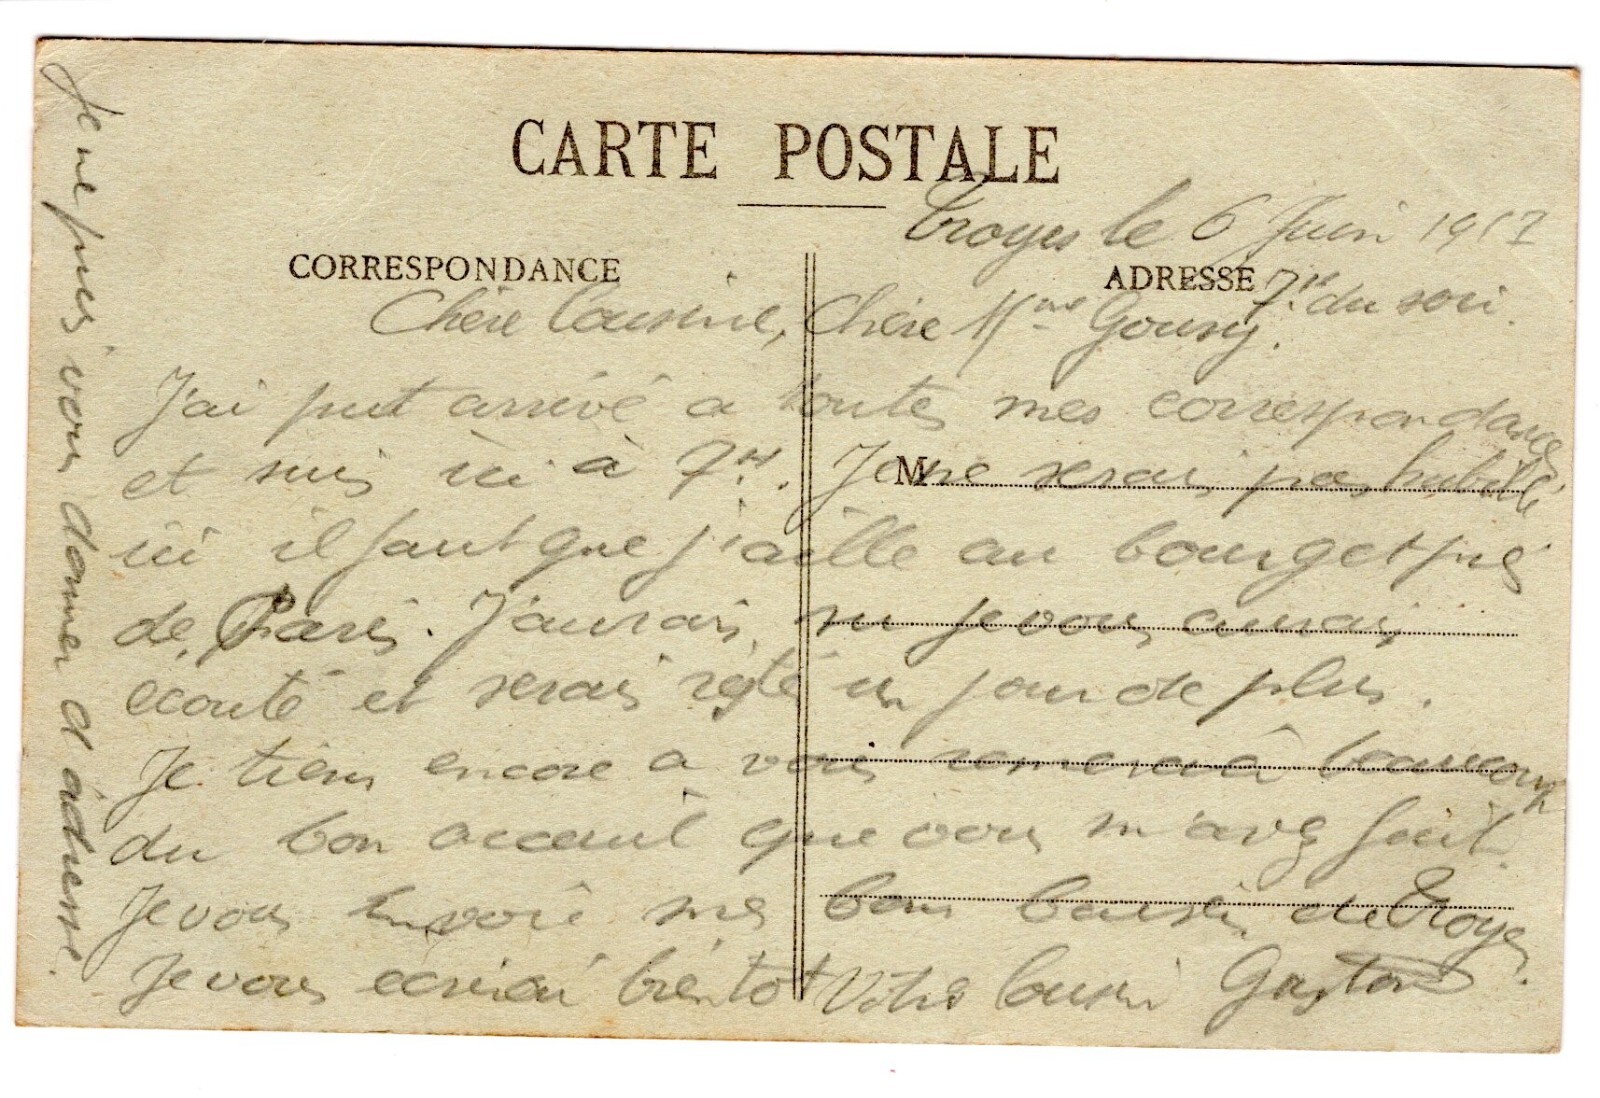 CARTE POSTALE
Troyes le 6 Juin 1917
CORRESPONDANCE
ADRESSE
7h du soir.
Chère Cousine, Chère Mme
J'ai put arrivé a toutes mes correspondances
et suis ici à 7h. Je ne serais pas habillé
M
ici il faut que j'aille au bourget près
de Paris. J'aurais su je vous aurais
écouté et serais resté un jour de plus.
Je tiens encore a vous remercié beaucoup
du bon acceuil que vous m'avez fait.
Je vous envoie mes bons baisers de Troyes.
Je vous écrirai bientot Votre Cousin Gaston
Je ne puis vous donner d'adresse.